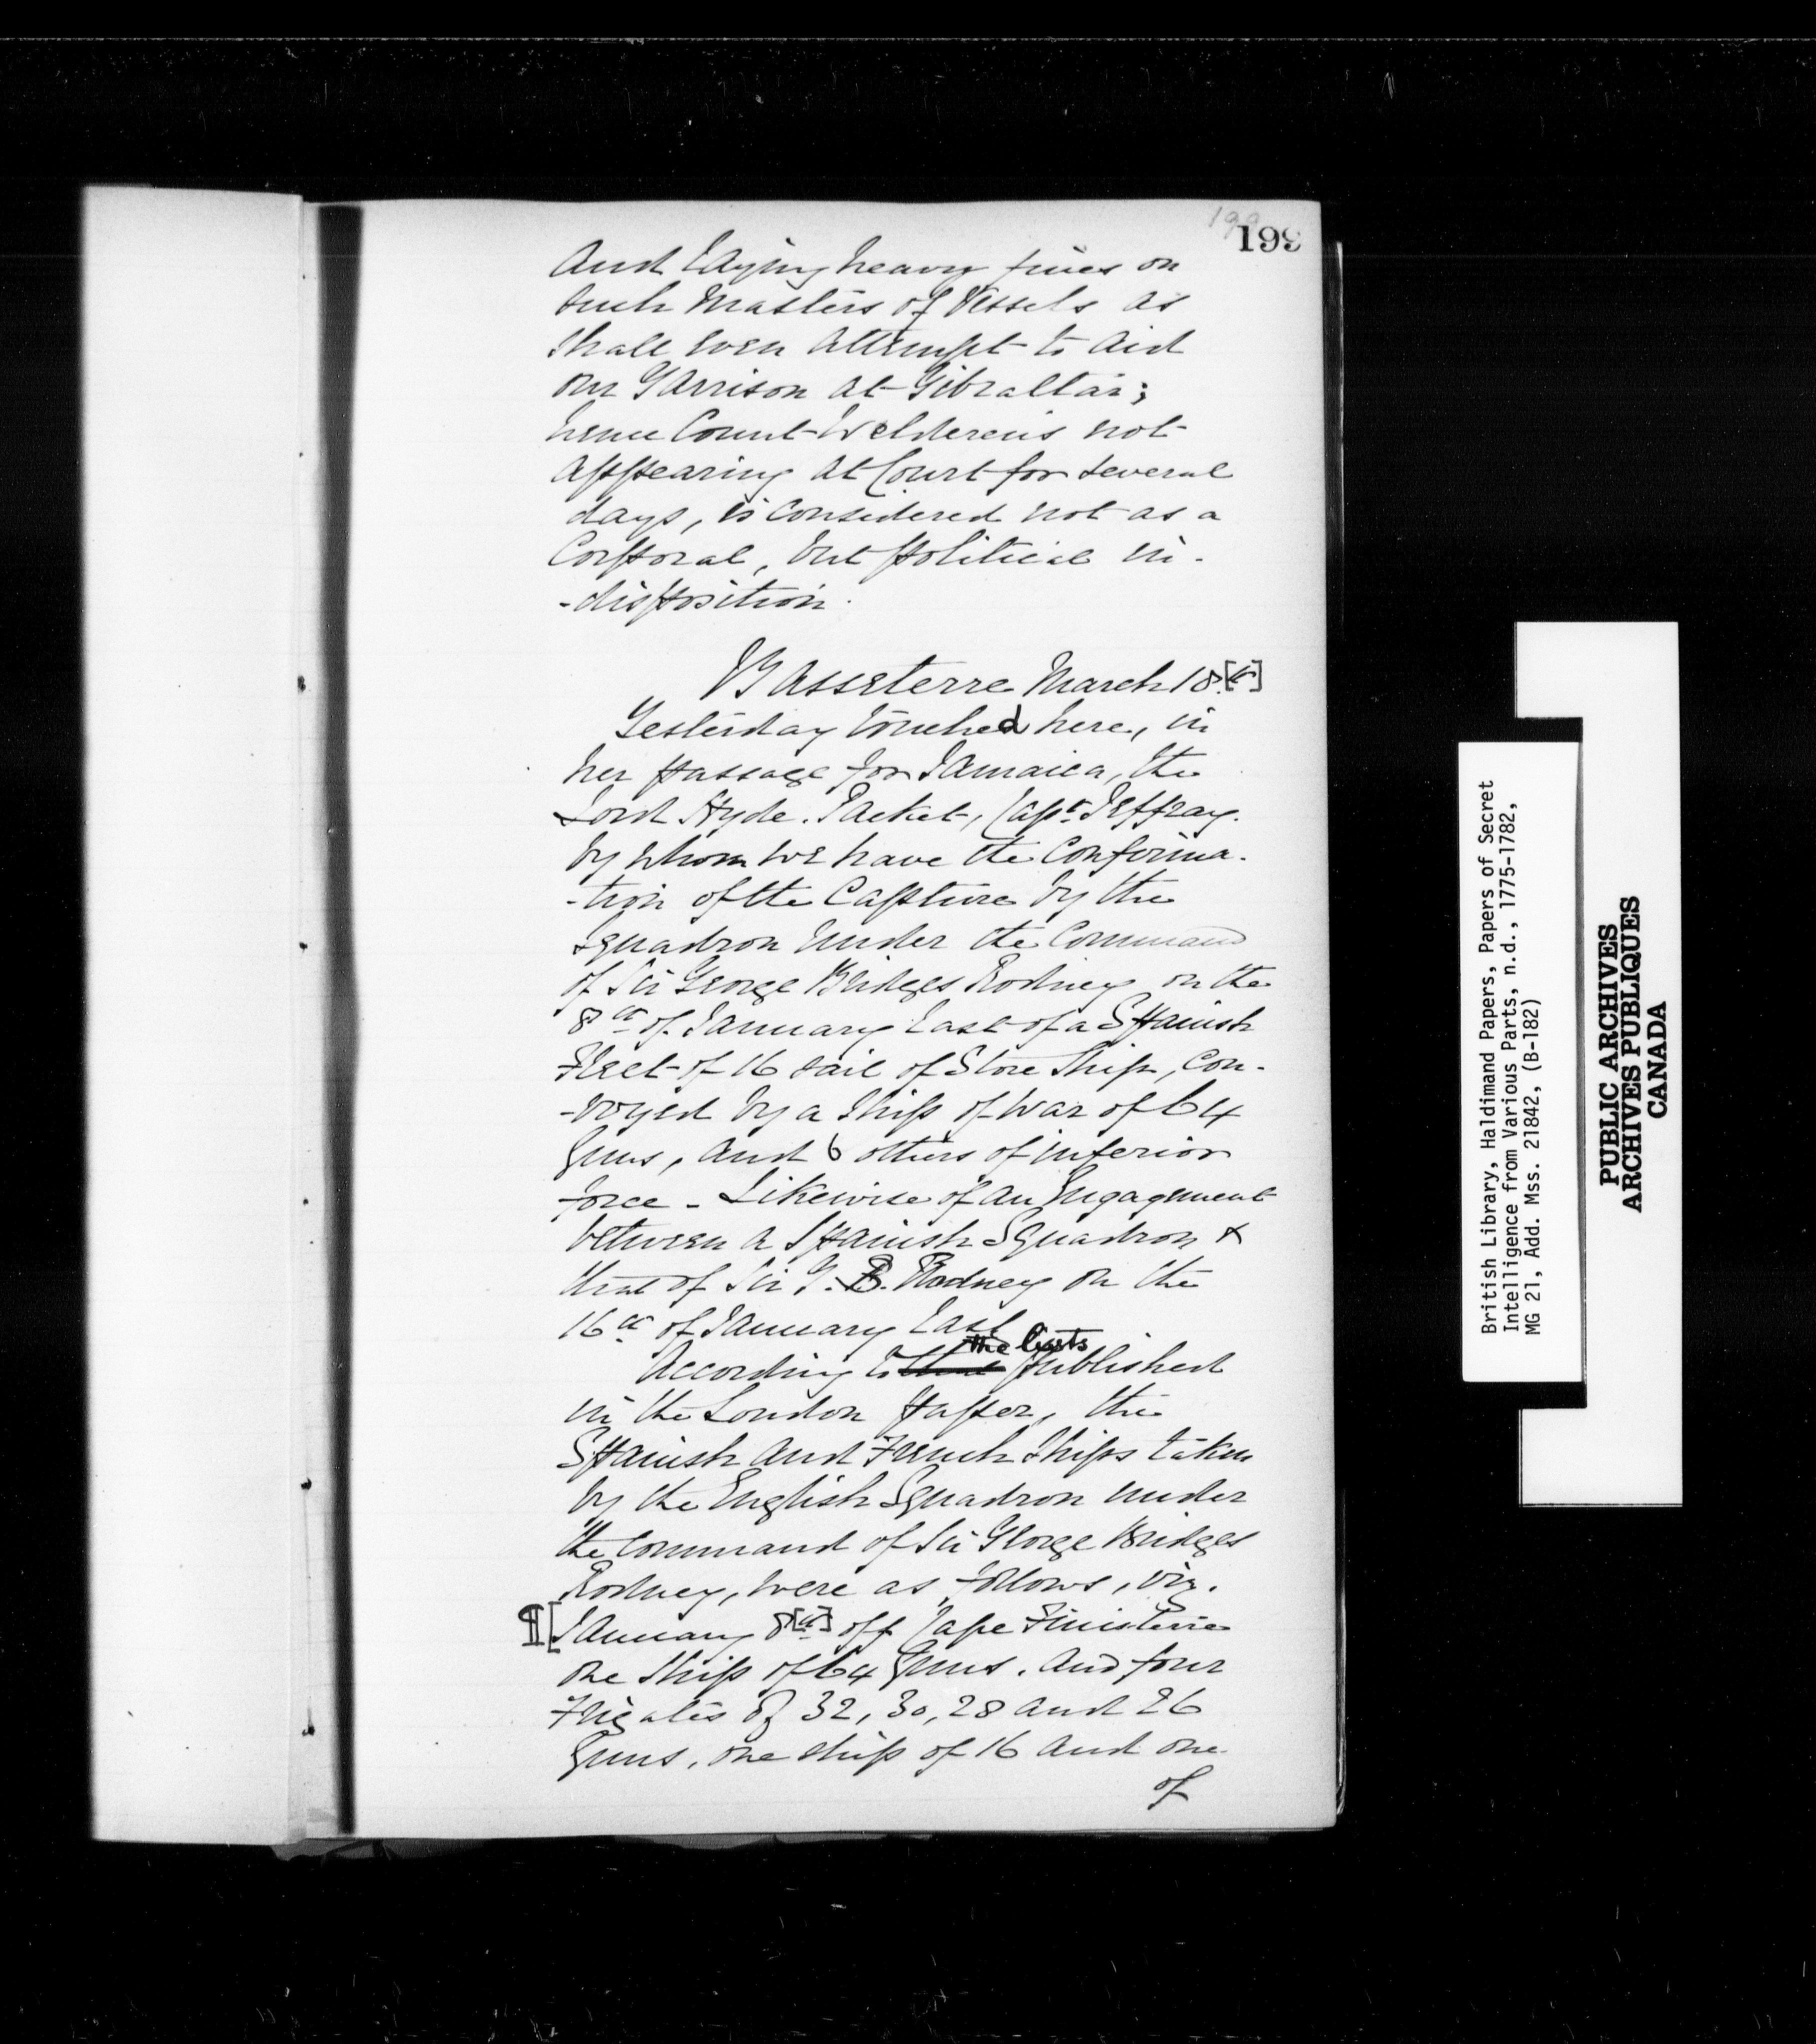 199
199
And laying heavy fines on
such Masters of Vessels as
shall even attempt to aid
our Garrison at Gibraltar;
hence Count Welderen's not
appearing at Court for several
days, is considered not as a
Corporal, but political in-
-disposition.
Basseterre March 18[th]
Yesterday touched here, in
her passage for Jamaica, the
Lord Hyde. Packet, Capt. Jeffray.
by whom we have the Confirma-
-tion of the Capture by the
squadron under the Command
of Sir George Bridges Rodney on the
8th of January last of a Spanish
Fleet of 16 sail of Store Ship, Con-
-voyed by a Ship of War of 64
Guns, and 6 others of inferior
force - Likewise of an Engagement
between a Spanish Squadron &
that of Sir G. B. Rodney on the
16th of January last
the lists
According to published
in the London paper, the
Spanish and French Ships taken
by the English Squadron under
the Command of Sir George Bridges
Rodney, were as follows, viz.
¶[January 8[th] off Cape Finisterre
one Ship of 64 Guns. And four
Frigates of 32, 30, 28 and 26
Guns, one ship of 16 and one
of
British Library, Haldimand Papers, Papers of Secret
Intelligence from Various Parts, n.d., 1775-1782,
MG 21, Add. Mss. 21842, (B-182)
PUBLIC ARCHIVES
ARCHIVES PUBLIQUES
CANADA